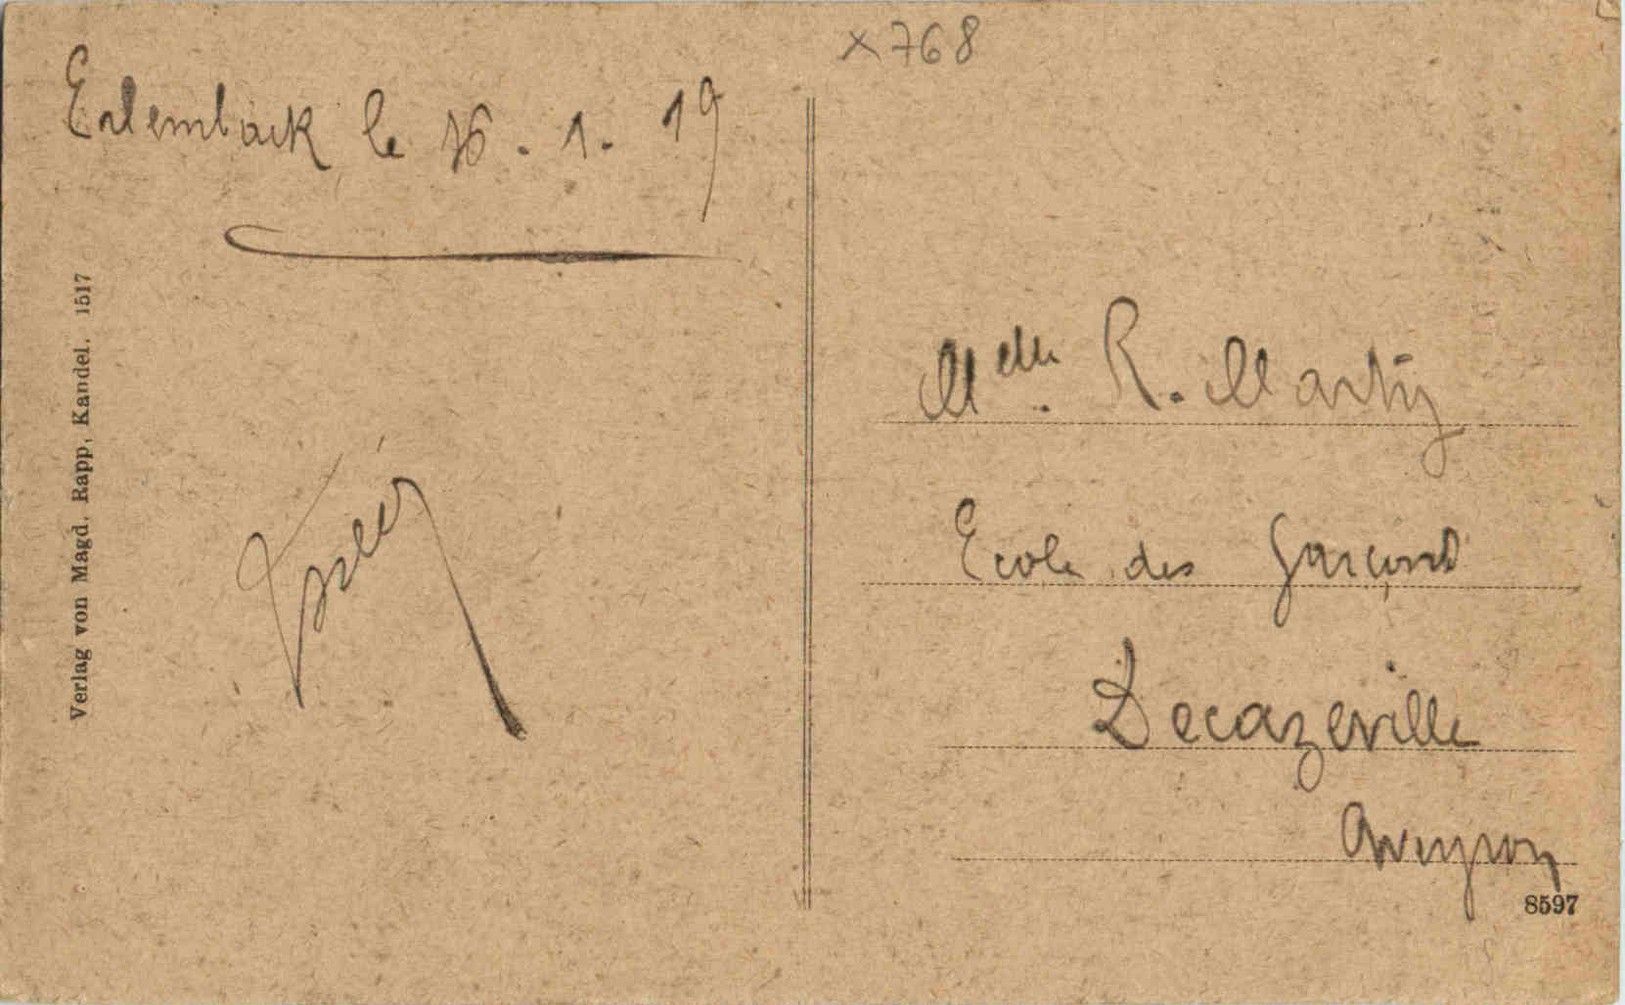 x 768
Erlemback le 16. 1. 19
Verlag von Magd. Rapp, Kandel. 1517
Melle. R. Martin
Ecole des Garçons
Decazeville
Aveyron
8597